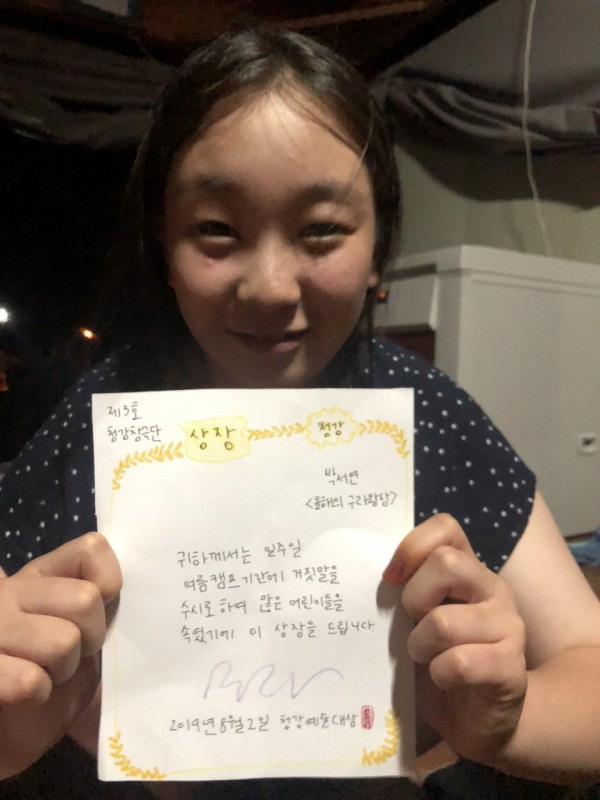 제3호
청강창극단
상장
청강
박서연
<올해의 구라왕상>
귀하께서는 일주일
여름캠프기간에 거짓말을
수시로 하여 많은 어린이들을
속였기에 이 상장을 드립니다
2019년 8월 2일 청강예술대상